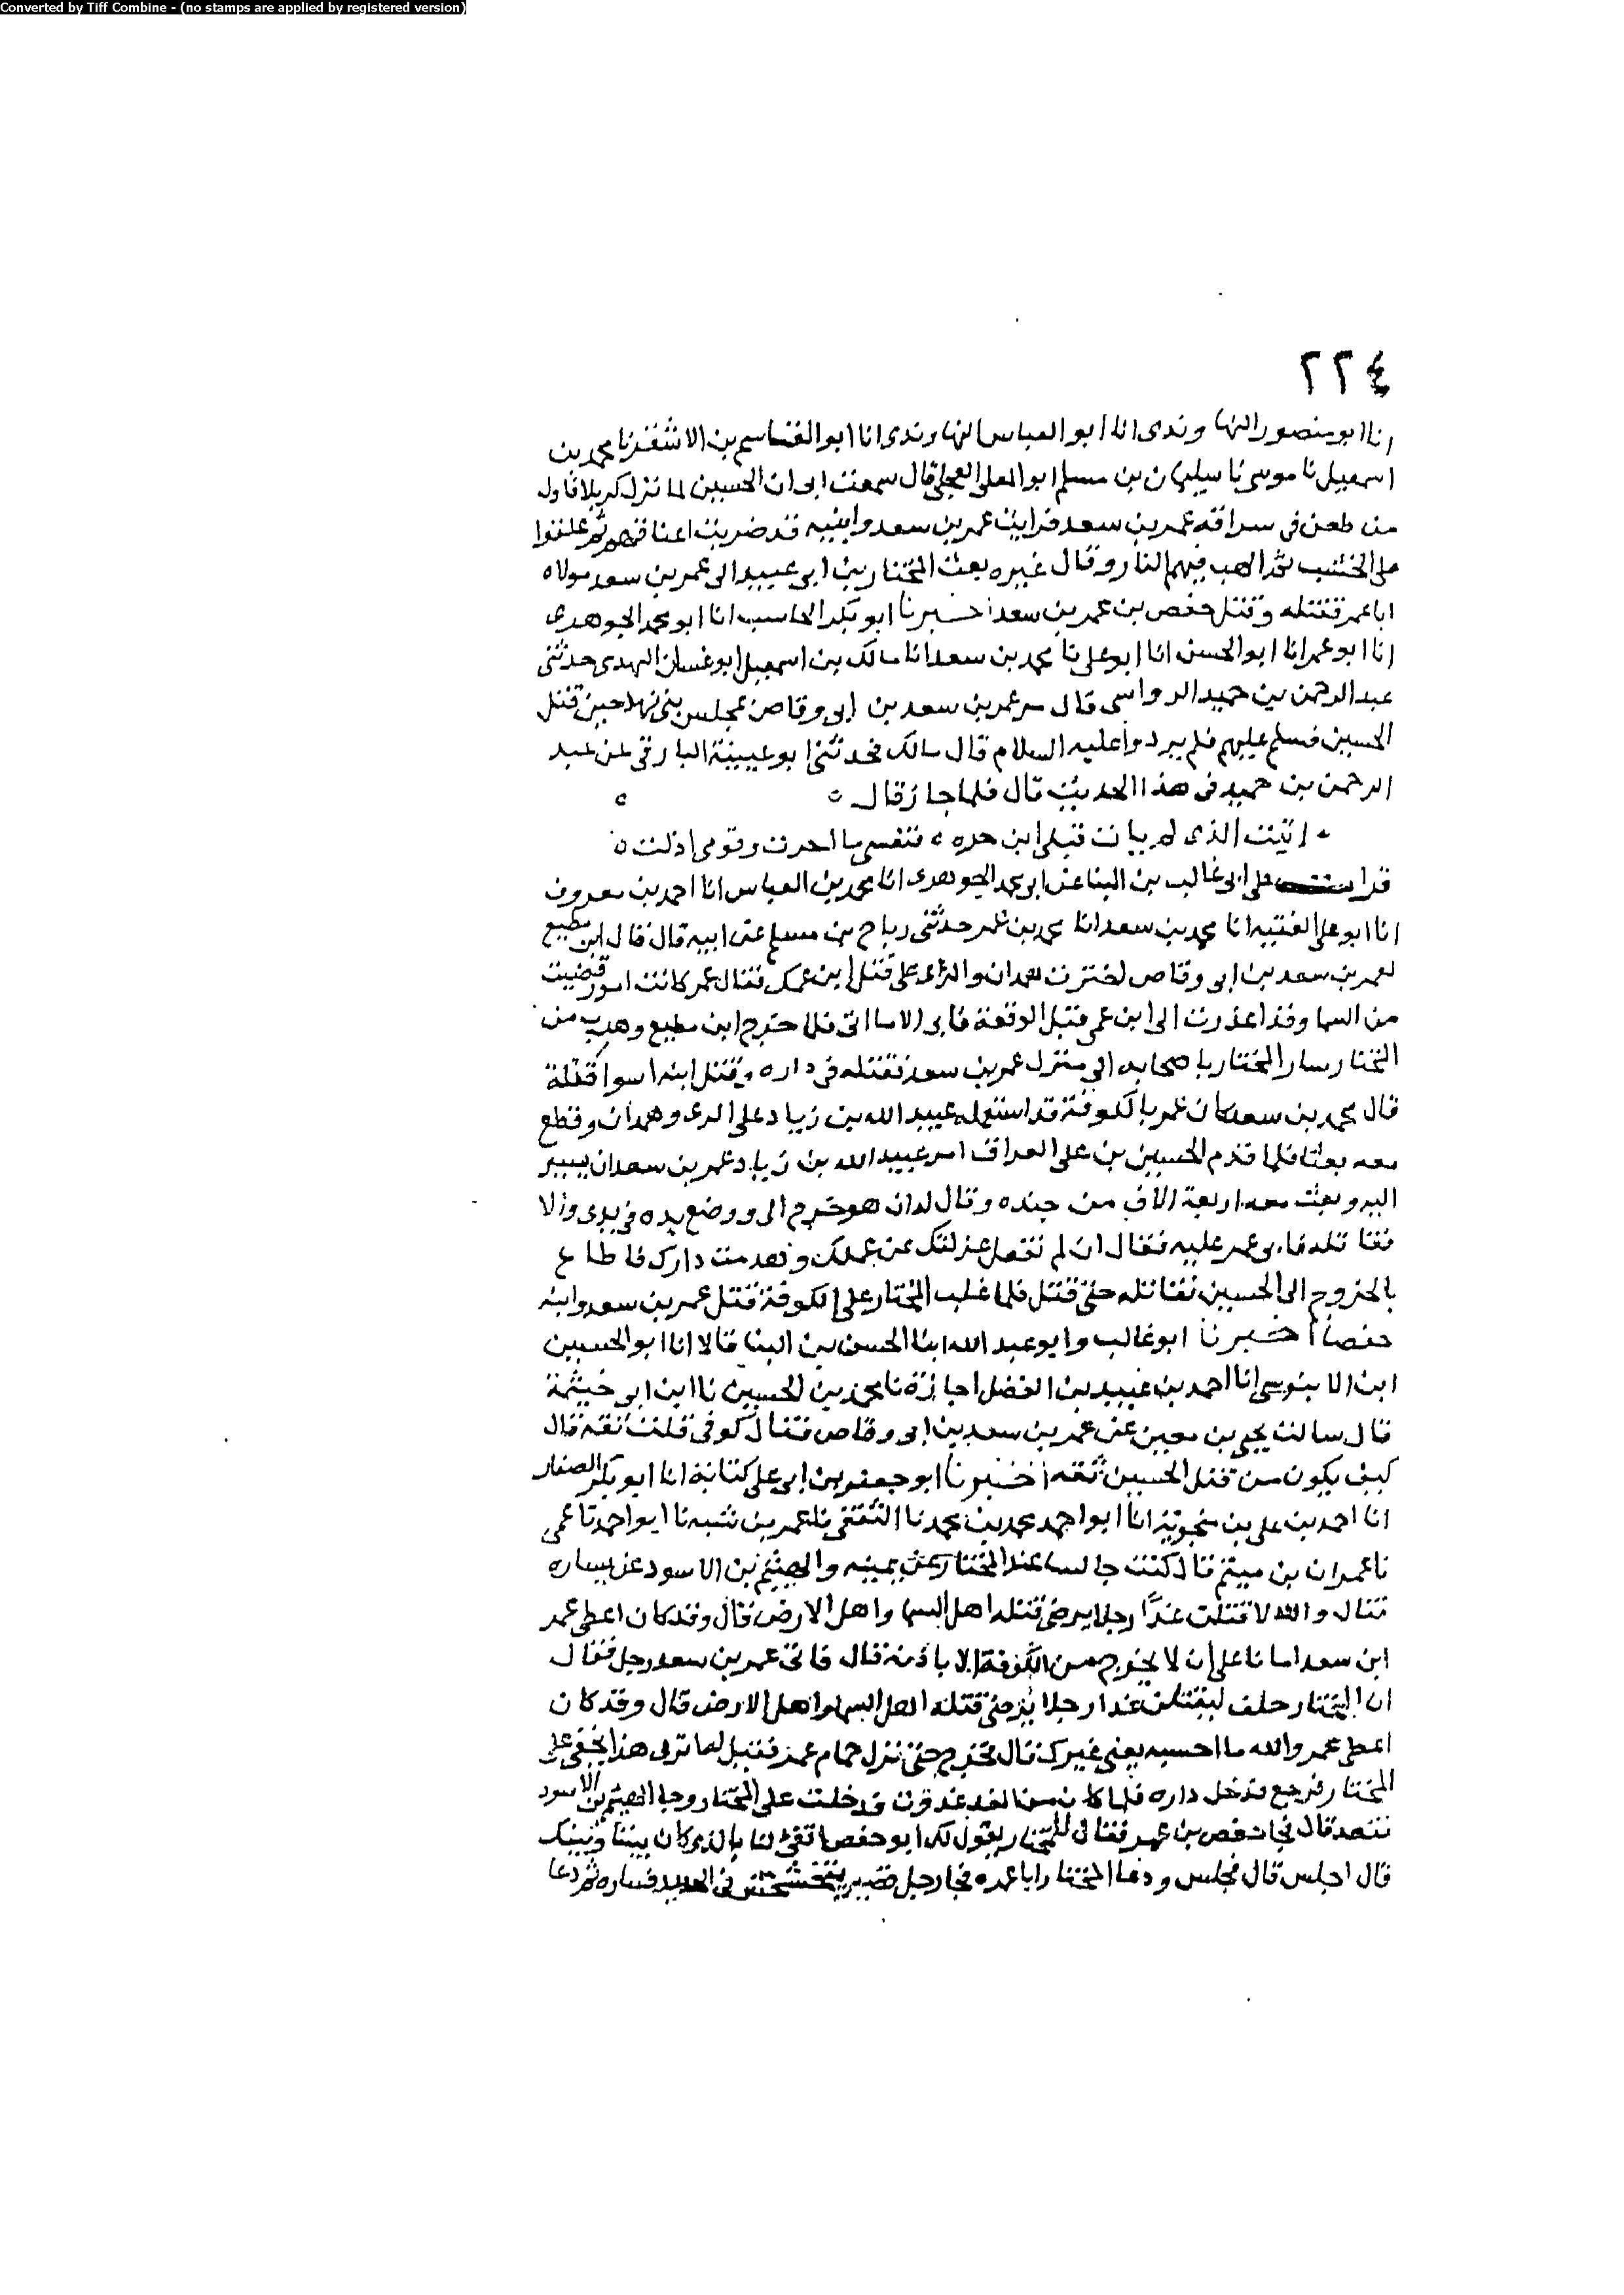 Converted by Tiff Combine - (no stamps are applied by registered version)
٢٢٤
انا ابو منصور النهاوندى انا ابو العباس النهاوندى انا ابو القاسم بن الاشقر نا محمد بن
اسمعيل نا موسى نا سليمان بن مسلم ابو المعلى العجلى قال سمعت ابى ان الحسين لما نزل كربلا فاول
من طعن فى سرادقه عمر بن سعد فرايت عمر بن سعد وابنيه قد ضربت اعناقهم ثم علقوا
على الخشب ثم الهب فيهم النار وقال غيره بعث المختار بن ابى عبيد الى عمر بن سعد مولاه
ابا عمر فقتله وقتل حفص بن عمر بن سعد اخبرنا ابو بكر الحاسب انا ابو محمد الجوهرى
انا ابو عمر انا ابو الحسن انا ابو على نا محمد بن سعد انا مالك بن اسمعيل ابو غسان النهدى حدثنى
عبد الرحمن بن حميد الرواسى قال مر عمر بن سعد بن ابى وقاص بمجلس بنى نهد حين قتل
الحسين فسلم عليهم فلم يردوا عليه السلام قال مالك فحدثنى ابو عيينة البارقى عن عبد
الرحمن بن حميد فى هذا الحديث قال فلما جاز قال
اتيت الذى لم يات قبلى ابن حره ه فنفسى ما احرت وقومى اذلت ه
قرات على ابى غالب بن البنا عن ابى محمد الجوهرى انا محمد بن العباس انا احمد بن معروف
انا ابو على الفقيه انا محمد بن سعد انا محمد بن عمر حدثنى رباح بن مسلم عن ابيه قال قال ابن مطيع
لعمر بن سعد بن ابى وقاص اخترت همدان والرى على قتل ابن عمك فقال عمر كانت امور قضيت
من السما وقد اعذرت الى ابن عمى قبل الوقعة فابى الا ما اتى فلما خرج ابن مطيع وهرب من
المختار سار المختار باصحابه الى منزل عمر بن سعد فقتله فى داره وقتل ابنه اسوا قتلة
قال محمد بن سعد كان عمر بالكوفة قد استعمله عبيد الله بن زياد على الرى وهمدان وقطع
معه بعثا فلما قدم الحسين بن على العراق امر عبيد الله بن زياد عمر بن سعد ان يسير
اليه وبعث معه اربعة الاف من جنده وقال له ان هو خرج الى ووضع يده فى يدى والا
فقاتله فابى عمر عليه فقال ان لم تفعل عزلتك عن عملك وهدمت دارك فاطاع
بالخروج الى الحسين فقاتله حتى قتل فلما غلب المختار على الكوفة قتل عمر بن سعد وابنه
حفصا اخبرنا ابو غالب وابو عبد الله ابنا الحسن بن البنا قالا انا ابو الحسين
ابن الابنوسى انا احمد بن عبيد بن الفضل اجازة نا محمد بن الحسين نا ابن ابى خيثمة
قال سالت يحيى بن معين عن عمر بن سعد بن ابى وقاص فقال كوفى قلت ثقة قال
كيف يكون من قتل الحسين ثقه اخبرنا ابو جعفر بن ابى على كتابة انا ابو بكر الصفار
انا احمد بن على بن منجويه انا ابو احمد محمد بن محمد نا الثقفى نا عمر بن شبه نا ابو احمد نا عمى
نا عمران بن ميثم قال كنت جالسا عند المختار عن يمينه والهيثم بن الاسود عن يساره
فقال والله لاقتلن غدا رجلا يرضى قتله اهل السما واهل الارض قال وقد كان اعطى عمر
ابن سعد امانا على ان لا يخرج من الكوفة الا باذنه قال فاتى عمر بن سعد رجل فقال
ان المختار حلف ليقتلن غدا رجلا يرضى قتله اهل السما واهل الارض قال وقد كان
اعطى عمر والله ما احسبه يعنى غيرك قال فخرج حتى نزل حمام عمر فقيل له اترى هذا يخفى على
المختار فرجع فدخل داره فلما كان من الغد غدوت فدخلت على المختار وجا الهيثم بن الاسود
فقعد قال فجا حفص بن عمر فقال للمختار يقول لك ابو حفص اتفى لنا بالذى كان بيننا وبينك
قال اجلس قال فجلس ودعا المختار ابا عمره فجا رجل قصير يتخشخش فى الحديد فساره ثم دعا